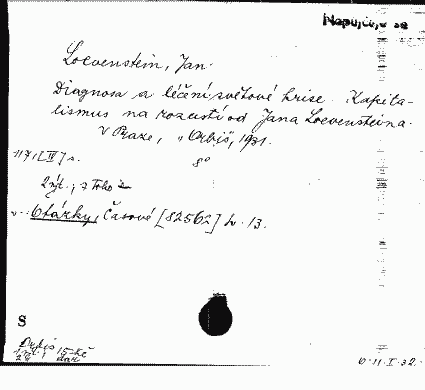 Nepůjčuje se
Loevenstein, Jan.
Diagnosa a léčení světové krise. Kapita-
lismus na rozcestí od Jana Loevensteina.
V Praze, „Orbis", 1931.
117, [IV] s. 8°
2 výt., z toho
v: Otázky, Časové [82562] sv. 13.
S
Orbis 15 Kč
1 výt.
dar
6.II.I.32.